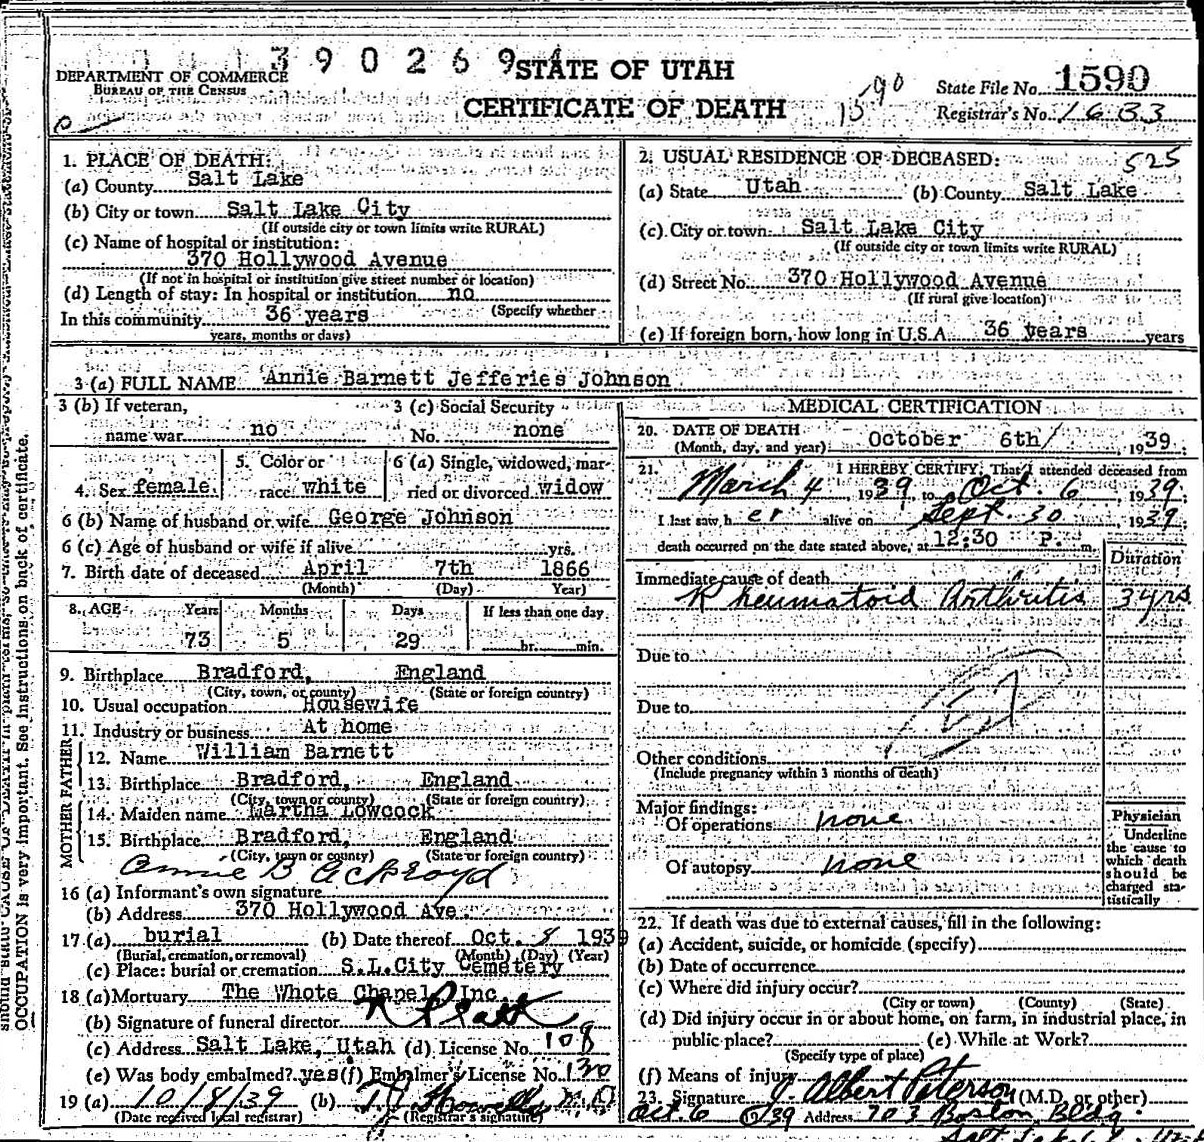 390269
DEPARTMENT OF COMMERCE
BUREAU OF THE CENSUS
STATE OF UTAH
CERTIFICATE OF DEATH
15-90
State File No. 1590
Registrar's No. 1633
1. PLACE OF DEATH:
(a) County Salt Lake
(b) City or town Salt Lake City
(If outside city or town limits write RURAL)
(c) Name of hospital or institution:
370 Hollywood Avenue
(If not in hospital or institution give street number or location)
(d) Length of stay: In hospital or institution no
(Specify whether
In this community 36 years
years, months or days)
2. USUAL RESIDENCE OF DECEASED: 525
(a) State Utah (b) County Salt Lake
(c) City or town Salt Lake City
(If outside city or town limits write RURAL)
(d) Street No. 370 Hollywood Avenue
(If rural give location)
(e) If foreign born, how long in U.S.A. 36 years years
3 (a) FULL NAME Annie Barnett Jefferies Johnson
3 (b) If veteran, name war no
3 (c) Social Security No. none
4. Sex female
5. Color or race white
6 (a) Single, widowed, married or divorced widow
6 (b) Name of husband or wife George Johnson
6 (c) Age of husband or wife if alive yrs.
7. Birth date of deceased April 7th 1866
(Month) (Day) Year)
8. AGE Years Months Days If less than one day
73 5 29 hr. min.
9. Birthplace Bradford, England
(City, town, or county) (State or foreign country)
10. Usual occupation Housewife
11. Industry or business At home
FATHER
12. Name William Barnett
13. Birthplace Bradford, England
(City, town or county) (State or foreign country)
MOTHER
14. Maiden name Martha Lowcock
15. Birthplace Bradford, England
(City, town or county) (State or foreign country)
Annie B Ackroyd
16 (a) Informant's own signature
(b) Address 370 Hollywood Ave.
17 (a) burial (b) Date thereof Oct. 9 1939
(Burial, cremation, or removal) (Month) (Day) (Year)
(c) Place: burial or cremation S.L.City Cemetery
18 (a) Mortuary The Whote Chapel, Inc.
(b) Signature of funeral director
(c) Address Salt Lake, Utah (d) License No. 108
(e) Was body embalmed? yes (f) Embalmer's License No. 130
19 (a) 10/8/39 (b) T.J. Howells M.D.
(Date received local registrar) (Registrar's signature)
MEDICAL CERTIFICATION
20. DATE OF DEATH
(Month, day, and year) October 6th/ 1939.
21. I HEREBY CERTIFY, That I attended deceased from
March 4 1939 to Oct. 6 1939.
I last saw h er alive on Sept. 30 1939
death occurred on the date stated above, at 12:30 P. m.
Duration
Immediate cause of death
Rheumatoid Arthritis 3 yrs
Due to
Due to
Other conditions
(Include pregnancy within 3 months of death)
Major findings:
Of operations none
Of autopsy none
Physician
Underline
the cause to
which death
should be
charged sta-
tistically
22. If death was due to external causes, fill in the following:
(a) Accident, suicide, or homicide (specify)
(b) Date of occurrence
(c) Where did injury occur?
(City or town) (County) (State)
(d) Did injury occur in or about home, on farm, in industrial place, in
public place? (e) While at Work?
(Specify type of place)
(f) Means of injury
23. Signature J. Albert Peterson (M.D. or other)
Oct. 6 1939 Address 703 Boston Bldg.
OCCUPATION is very important. See instructions on back of certificate.